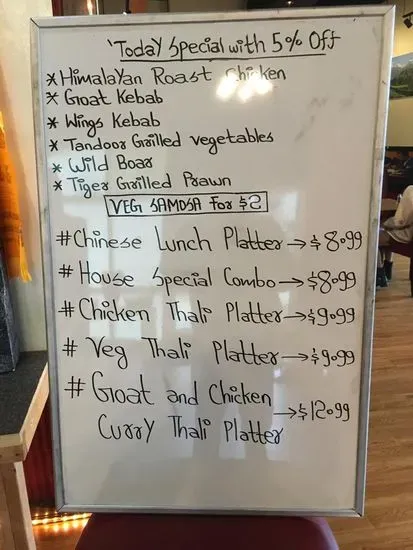 'Today Special with 5% Off
*Himalayan Roast Chicken
* Goat Kebab
* Wings Kebab
* Tandoor Grilled vegetables
* Wild Boar
* Tiger Grilled Prawn
VEG SAMOSA For $2
#Chinese Lunch Platter→$8.99
#House Special Combo→$8.99
#Chicken Thali Platter→$9.99
# Veg Thali Platter→$9.99
# Goat and Chicken
Curry Thali Platter →$12.99